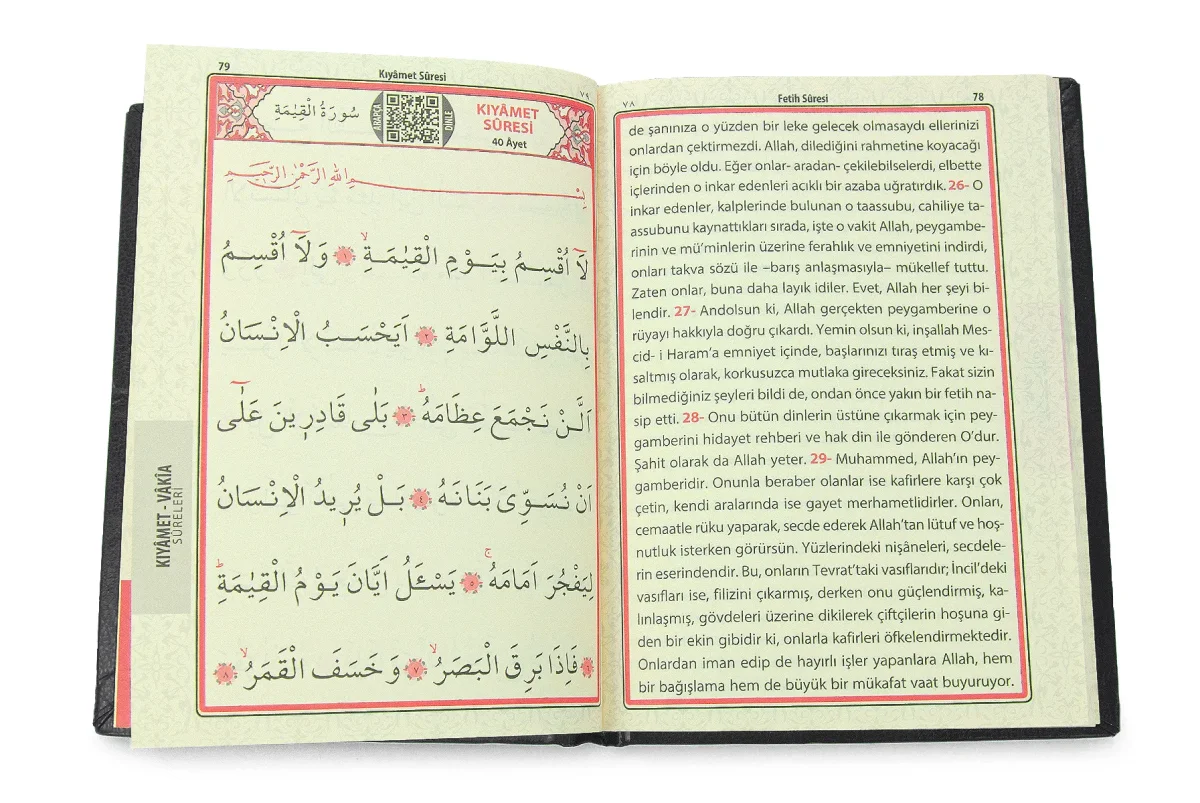 79
Kıyâmet Sûresi
٧٩
سُورَةُ الْقِيٰمَةِ
ARAPÇA
DİNLE
KIYÂMET
SÛRESİ
40 Âyet
بِسْــــمِ اللهِ الرَّحْمٰنِ الرَّحِيمِ
لَآ اُقْسِمُ بِيَوْمِ الْقِيٰمَةِۙ ﴿١﴾ وَلَآ اُقْسِمُ
بِالنَّفْسِ اللَّوَّامَةِ ﴿٢﴾ اَيَحْسَبُ الْاِنْسَانُ
اَلَّنْ نَجْمَعَ عِظَامَهُۜ ﴿٣﴾ بَلٰى قَادِر۪ينَ عَلٰٓى
اَنْ نُسَوِّيَ بَنَانَهُ ﴿٤﴾ بَلْ يُر۪يدُ الْاِنْسَانُ
لِيَفْجُرَ اَمَامَهُۚ ﴿٥﴾ يَسْـَٔلُ اَيَّانَ يَوْمُ الْقِيٰمَةِۜ
﴿٦﴾ فَاِذَا بَرِقَ الْبَصَرُۙ ﴿٧﴾ وَخَسَفَ الْقَمَرُۙ ﴿٨﴾
KIYÂMET - VÂKIA
SÛRELERİ
٧٨
Fetih Sûresi
78
de şanınıza o yüzden bir leke gelecek olmasaydı ellerinizi
onlardan çektirmezdi. Allah, dilediğini rahmetine koyacağı
için böyle oldu. Eğer onlar- aradan- çekilebilselerdi, elbette
içlerinden o inkar edenleri acıklı bir azaba uğratırdık. 26- O
inkar edenler, kalplerinde bulunan o taassubu, cahiliye ta-
assubunu kaynattıkları sırada, işte o vakit Allah, peygambe-
rinin ve mü’minlerin üzerine ferahlık ve emniyetini indirdi,
onları takva sözü ile –barış anlaşmasıyla– mükellef tuttu.
Zaten onlar, buna daha layık idiler. Evet, Allah her şeyi bi-
lendir. 27- Andolsun ki, Allah gerçekten peygamberine o
rüyayı hakkıyla doğru çıkardı. Yemin olsun ki, inşallah Mes-
cid- i Haram’a emniyet içinde, başlarınızı tıraş etmiş ve kı-
saltmış olarak, korkusuzca mutlaka gireceksiniz. Fakat sizin
bilmediğiniz şeyleri bildi de, ondan önce yakın bir fetih na-
sip etti. 28- Onu bütün dinlerin üstüne çıkarmak için pey-
gamberini hidayet rehberi ve hak din ile gönderen O’dur.
Şahit olarak da Allah yeter. 29- Muhammed, Allah’ın pey-
gamberidir. Onunla beraber olanlar ise kafirlere karşı çok
çetin, kendi aralarında ise gayet merhametlidirler. Onları,
cemaatle rüku yaparak, secde ederek Allah’tan lütuf ve hoş-
nutluk isterken görürsün. Yüzlerindeki nişâneleri, secdele-
rin eserindendir. Bu, onların Tevrat’taki vasıflarıdır; İncil’deki
vasıfları ise, filizini çıkarmış, derken onu güçlendirmiş, ka-
lınlaşmış, gövdeleri üzerine dikilerek çiftçilerin hoşuna gi-
den bir ekin gibidir ki, onlarla kafirleri öfkelendirmektedir.
Onlardan iman edip de hayırlı işler yapanlara Allah, hem
bir bağışlama hem de büyük bir mükafat vaat buyuruyor.